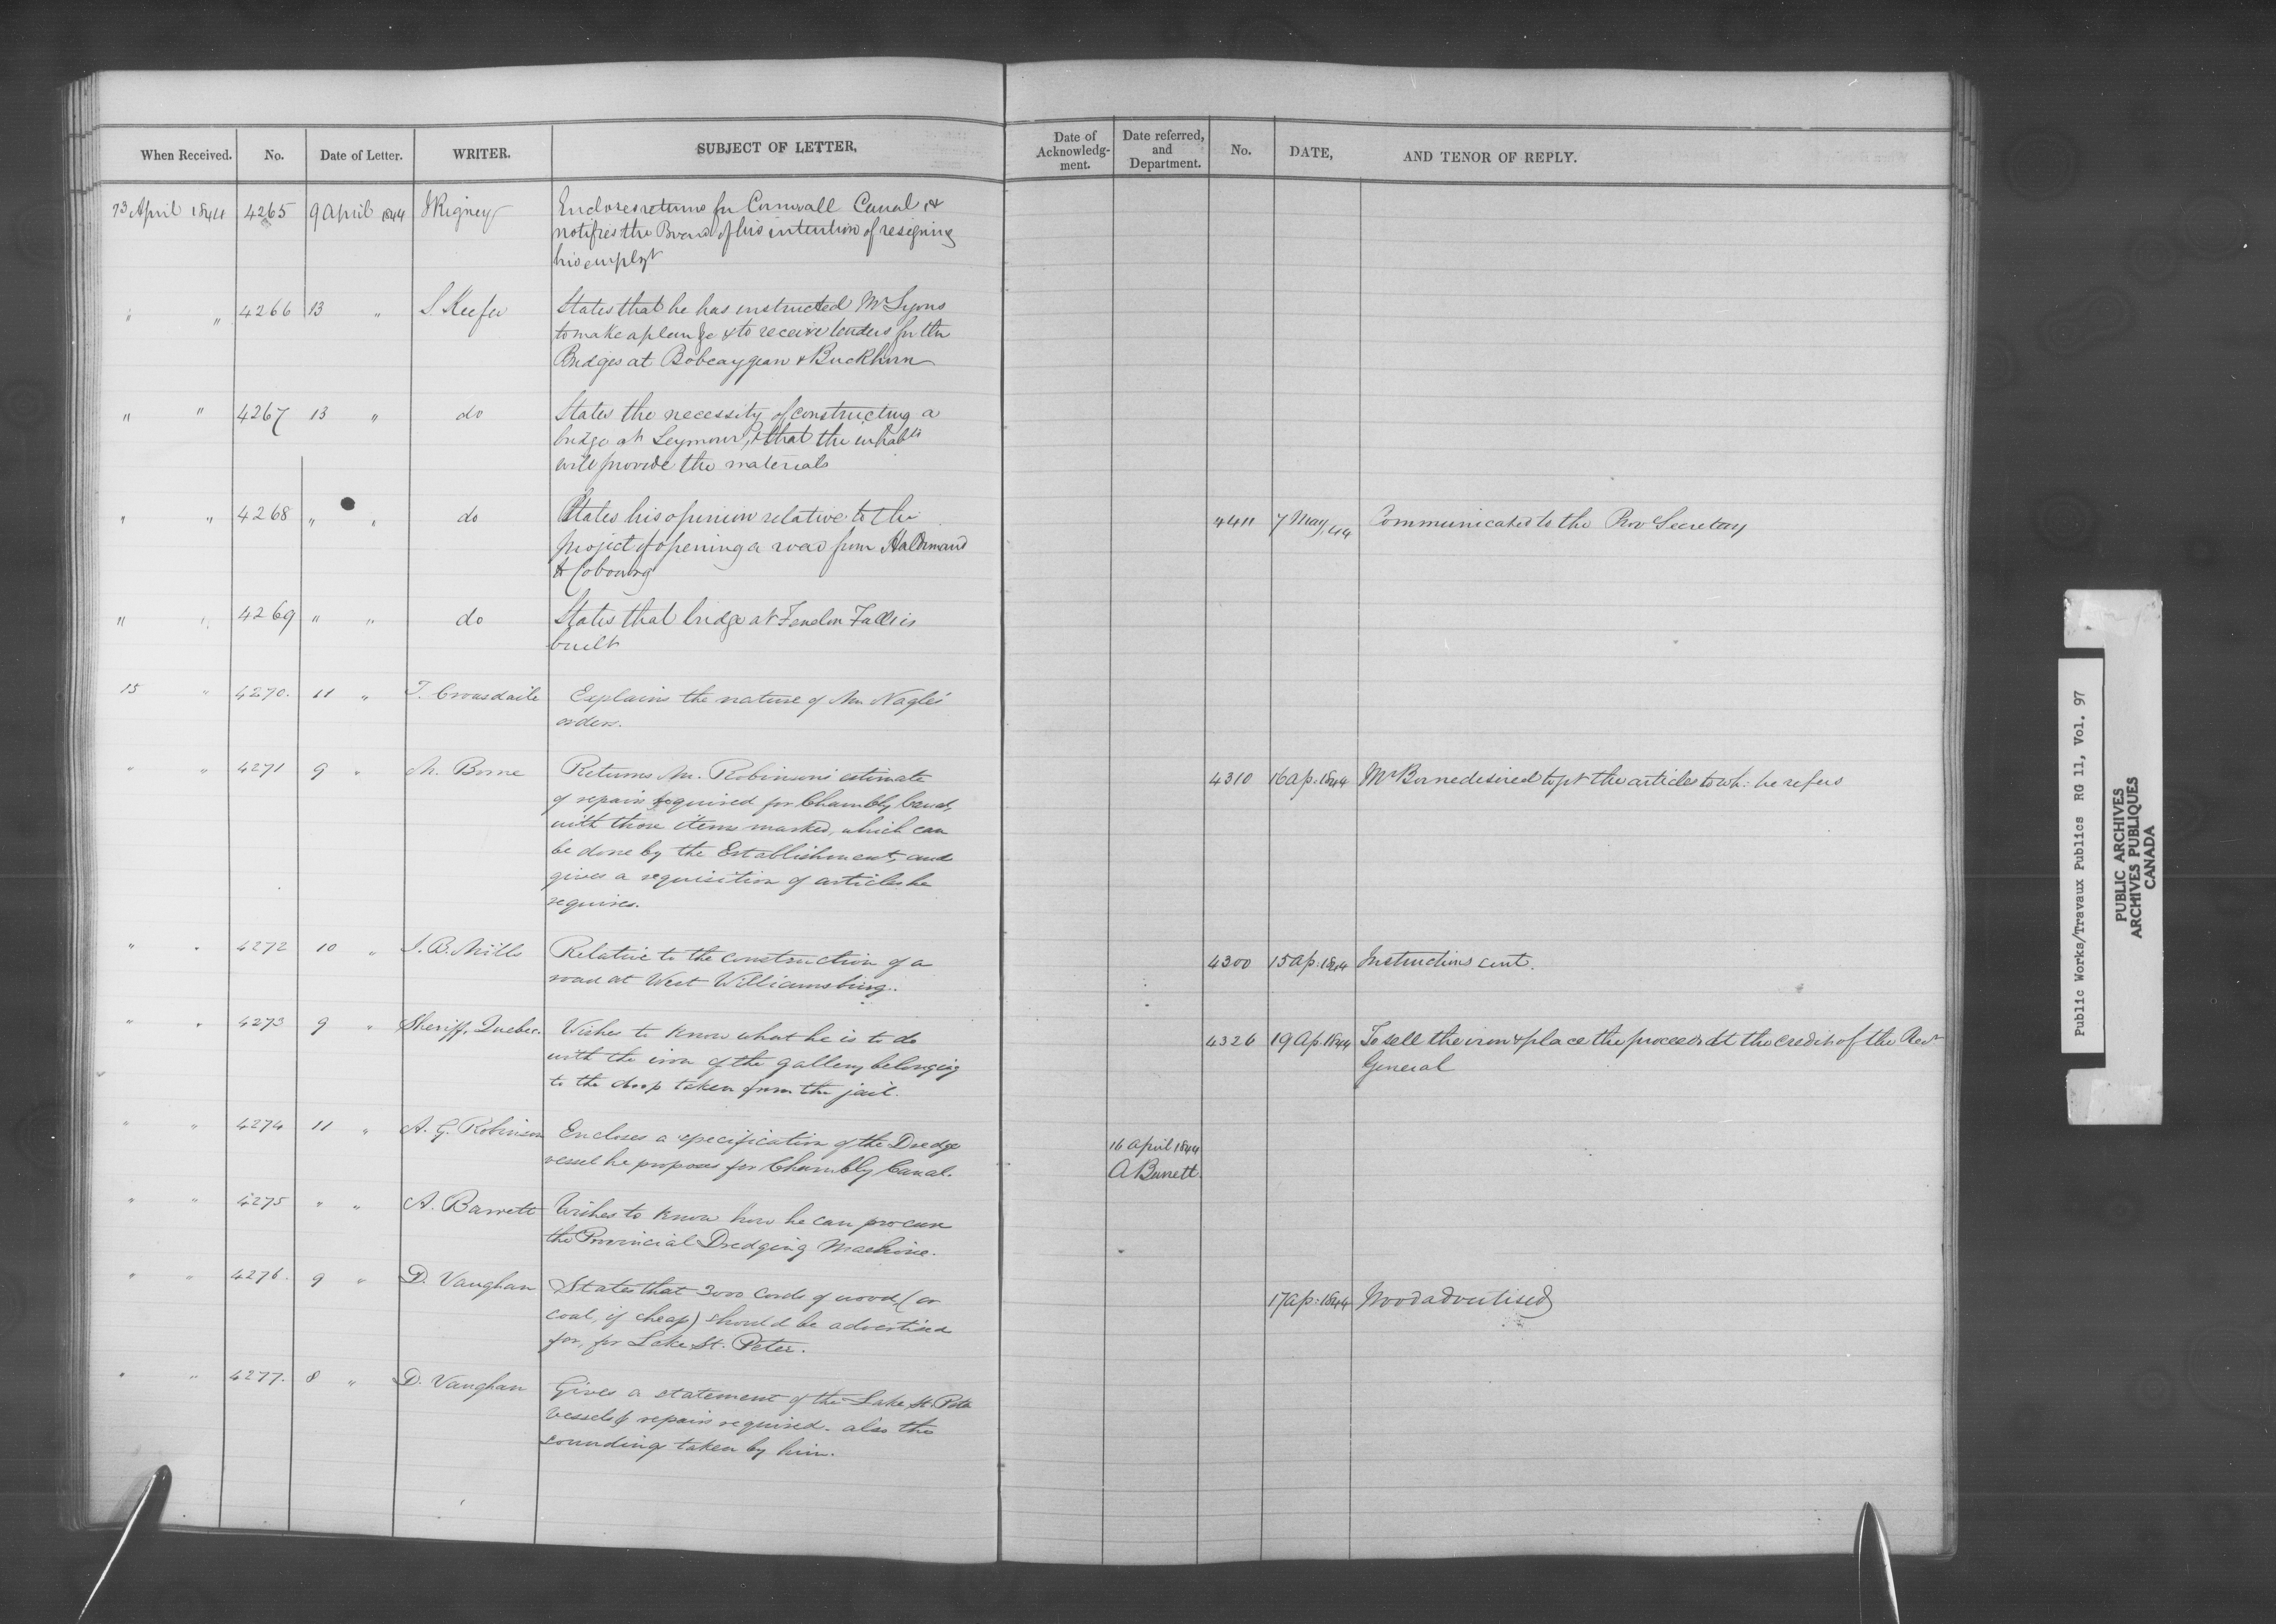 When Received. No. Date of Letter. WRITER. SUBJECT OF LETTER, Date of Acknowledg-ment. Date referred, and Department. No. DATE, AND TENOR OF REPLY.
13 April 1844 4265 9 April 1844 J Rigney Encloses returns for Cornwall Canal, &
notifies the Board of his intention of resigning
his employt
" " 4266 13 " S. Keefer States that he has instructed Mr Lyons
to make a plan &c & to receive tenders for the
Bridges at Bobcaygean & Buckhorn
" " 4267 13 " do States the necessity of constructing a
bridge at Seymour, & that the inhabts
will provide the materials
" " 4268 " " do States his opinion relative to the 4411 7 May, 44 Communicated to the Prov Secretary
project of opening a road from Haldimand
to Cobourg
" " 4269 " " do States that bridge at Fenelon Falls is
built
15 " 4270. 11 " T. Crousdaile Explains the nature of Mr. Nagle's
orders.
" " 4271 9 " M. Borne Returns Mr. Robinson's estimate 4310 16 Ap. 1844 Mr Borne desired to get the articles to wh: he refers
of repairs required for Chambly Canal,
with those items marked, which can
be done by the Establishment, and
gives a requisition of articles he
requires.
" " 4272 10 " J. B. Mills Relative to the construction of a 4300 15 ap: 1844 Instructions sent.
road at West Williamsburg.
" " 4273 9 " Sheriff, Quebec. Wishes to know what he is to do 4326 19 Ap. 1844 To sell the iron & place the proceeds at the credit of the Recr
with the iron of the gallery belonging General
to the drop taken from the jail.
" " 4274 11 " A. G. Robinson Encloses a specification of the Dredge 16 April 1844
vessel he proposes for Chambly Canal. A Barrett.
" " 4275 " " A. Barrett Wishes to know how he can procure
the Provincial Dredging Machine.
" " 4276. 9 " D. Vaughan States that 3000 Cords of wood, (or 17 ap: 1844 Wood advertised
coal, if cheap) should be advertised
for, for Lake St. Peter.
" " 4277. 8 " D. Vaughan Gives a statement of the Lake St. Peter
vessels & repairs required. also the
soundings taken by him.
Public Works/Travaux Publics RG 11, Vol. 97
PUBLIC ARCHIVES
ARCHIVES PUBLIQUES
CANADA